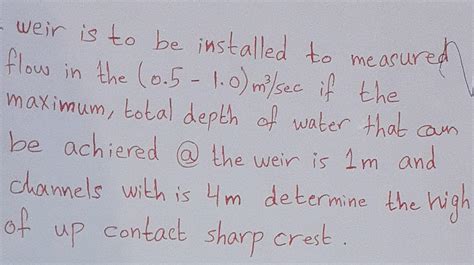 - weir is to be installed to measured
flow in the (0.5 - 1.0) m³/sec if the
maximum, total depth of water that can
be achiered @ the weir is 1m and
channels with is 4m determine the high
of up contact sharp crest.